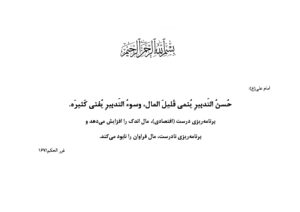 بِسْمِ اللهِ الرَّحْمنِ الرَّحیمِ
امام علی(ع):
حُسنُ التَّدبیرِ یُنمی قَلیلَ المال، وسوءُ التَّدبیرِ یُفنی کَثیرَه.
برنامه‌ریزی درست (اقتصادی)، مال اندک را افزایش می‌دهد و
برنامه‌ریزی نادرست، مال فراوان را نابود می‌کند.
غرر الحکم/۱۶۷